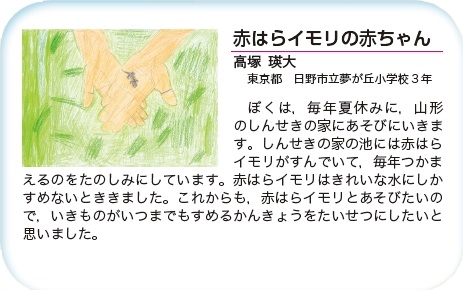 赤はらイモリの赤ちゃん
高塚 瑛大
東京都　日野市立夢が丘小学校３年
ぼくは，毎年夏休みに，山形
のしんせきの家にあそびにいきま
す。しんせきの家の池には赤はら
イモリがすんでいて，毎年つかま
えるのをたのしみにしています。赤はらイモリはきれいな水にしか
すめないとききました。これからも，赤はらイモリとあそびたいの
で，いきものがいつまでもすめるかんきょうをたいせつにしたいと
思いました。